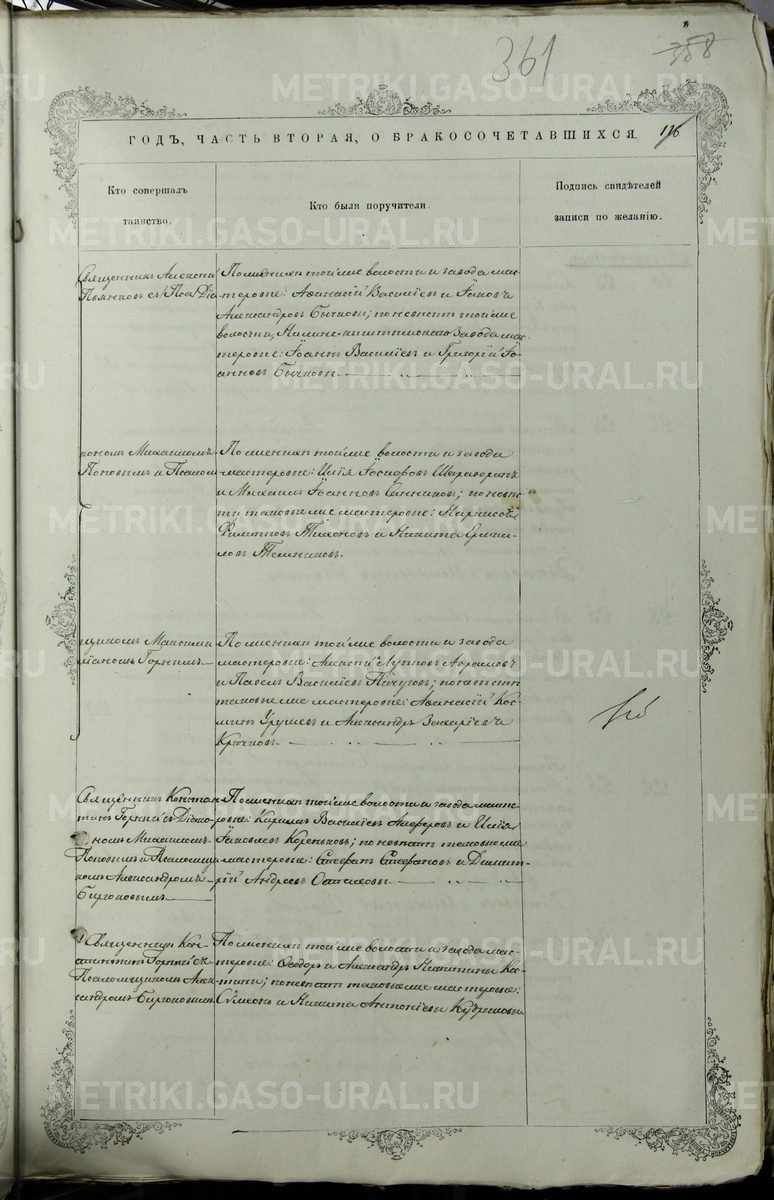 361
358
ГОДЪ, ЧАСТЬ ВТОРАЯ, О БРАКОСОЧЕТАВШИХСЯ.
116
Кто совершалъ
таинство.
Кто были поручители.
Подпись свидѣтелей
записи по желанію.
Священникъ Алексѣй
Пьянковъ съ
По женихѣ той же волости и завода мас-
теровые: Аѳанасій Васильевъ и Іаковъ
Александровъ Бычковы; по невѣстѣ той же
волости, Нижне-Кыштымскаго завода мас-
теровые: Іоаннъ Васильевъ и Григорій Іо-
анновъ Бычковы
кономъ Михаиломъ
Поповымъ и Псалом-
По женихѣ той же волости и завода
мастеровые: Илія Іосифовъ
и Михаилъ Іоанновъ Санниковъ; по невѣс-
тѣ таковые же мастеровые:
Филипповъ Тихоновъ и Никита Ермил-
ловъ
щикомъ Максими-
ліаномъ Горнымъ
По женихѣ той же волости и завода
мастеровые: Алексѣй Лупповъ
и Павелъ Васильевъ Пичуговъ; по невѣстѣ
таковые же мастеровые: Аѳанасій Кос-
минъ Урушевъ и Александръ Захаріевъ
Крючковъ
Священникъ Констан-
тинъ Горный съ Діако-
номъ Михаиломъ
Поповымъ и Псаломщи-
комъ Александромъ
Бирюковымъ
По женихѣ той же волости и завода масте-
ровые: Кириллъ Васильевъ Алферовъ и Илія
Іаковлевъ Кореньковъ; по невѣстѣ таковые же
мастеровые: Стефанъ Стефановъ и Димит-
рій Андреевъ
Священникъ Кон-
стантинъ Горный съ
Псаломщикомъ Алек-
сандромъ Бирюковымъ
По женихѣ той же волости и завода мас-
теровые: Ѳеодоръ и Александръ Никитины Кос-
тины; по невѣстѣ таковые же мастеровые:
Сѵмеонъ и Никита Антоніевы Кудряшовы
METRIKI.GASO-URAL.RU